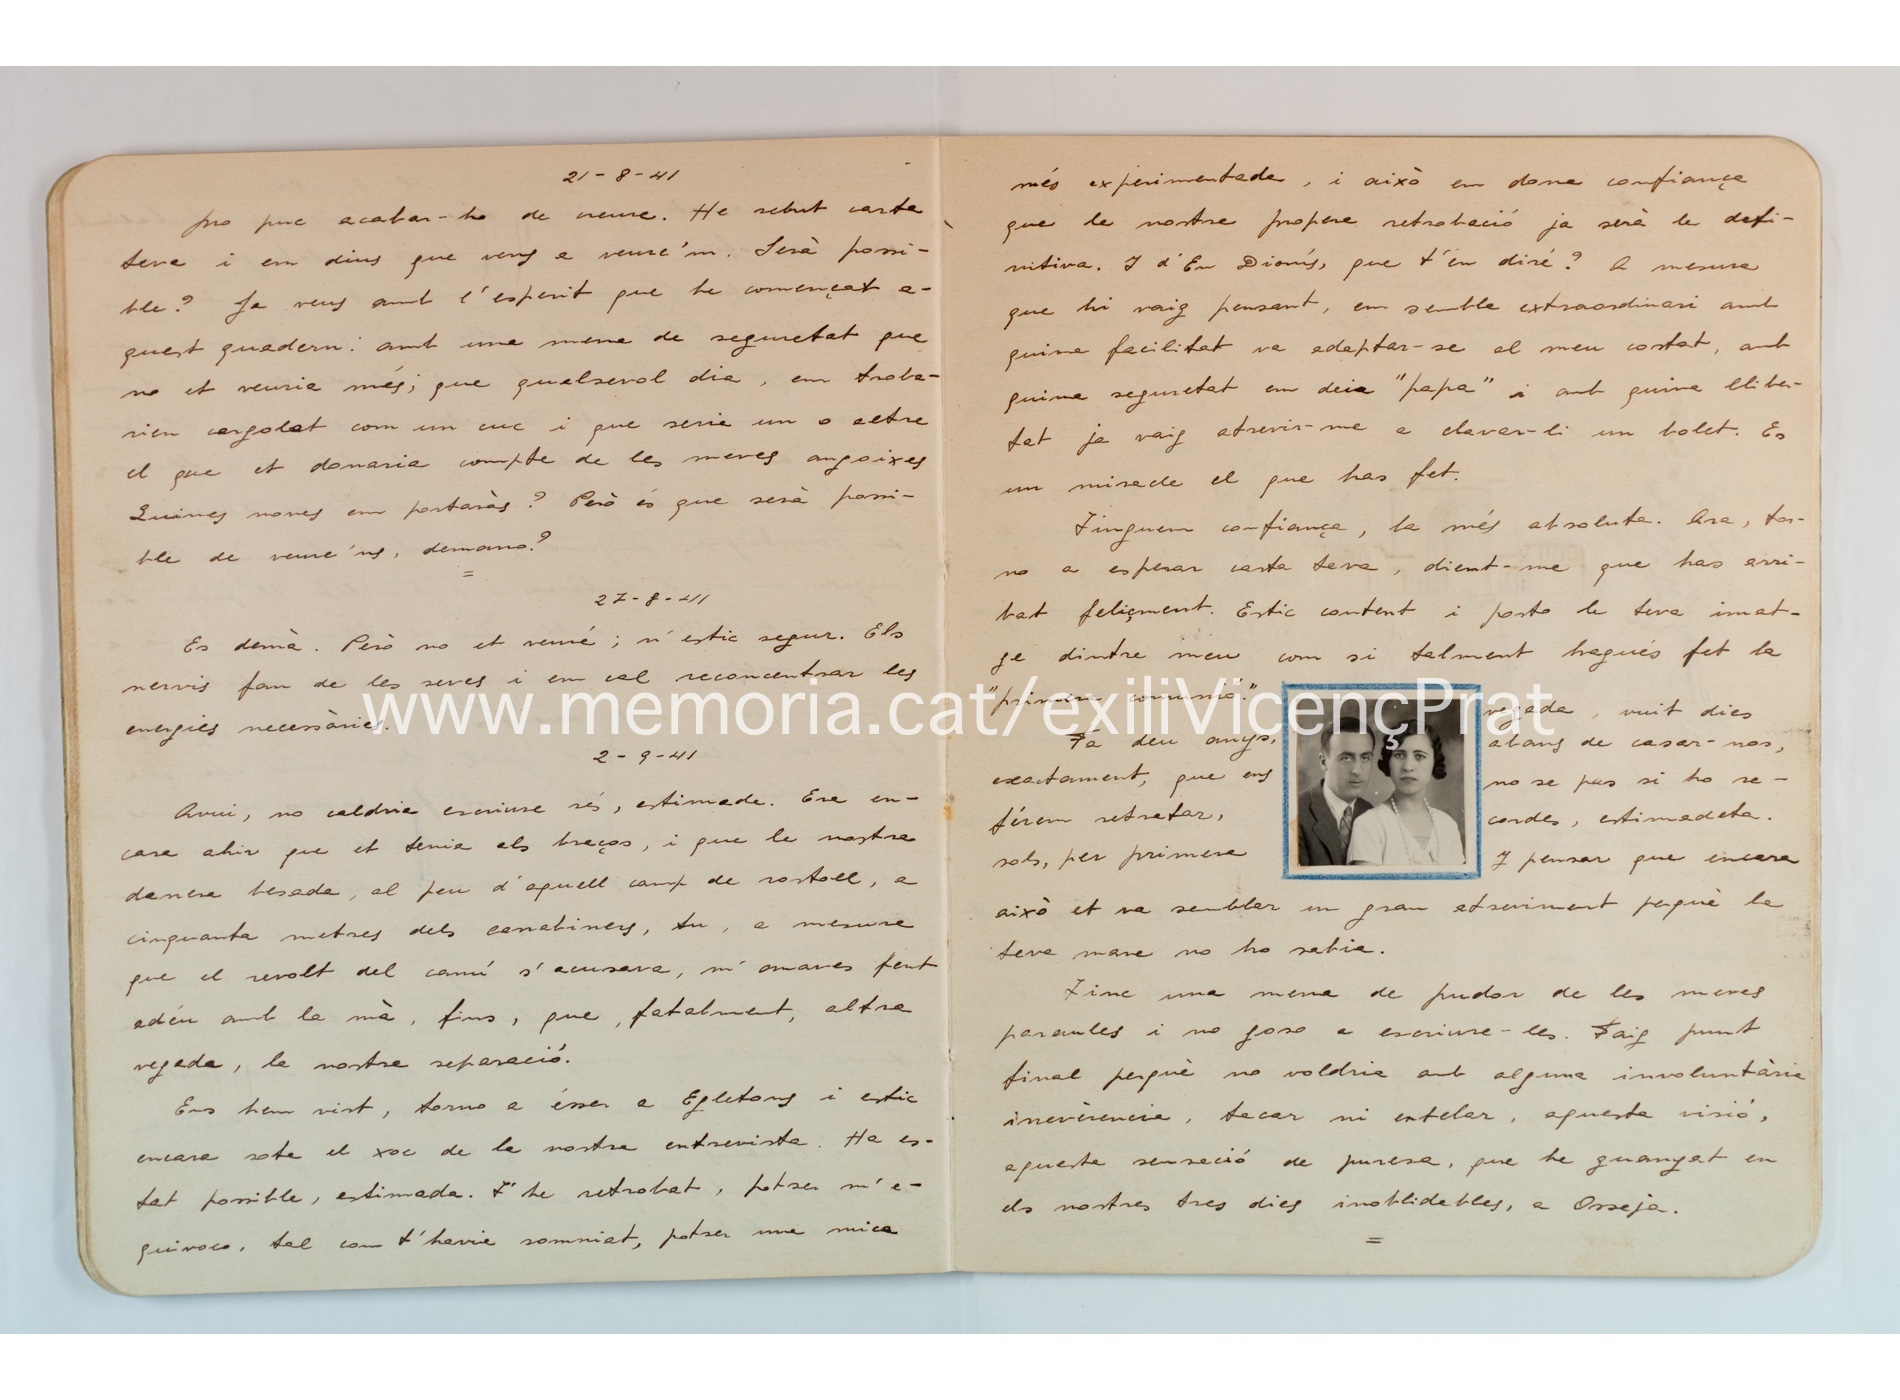 21-8-41
no puc acabar-ho de creure. He rebut carta
teva i em dius que vens a veure'm. Serà possi-
ble? Ja veus amb l'esperit que he començat a-
quest quadern: amb una mena de seguretat que
no et veuria més; que qualsevol dia, em troba-
rien cargolat com un cuc i que seria un o altre
el que et donaria compte de les meves angoixes
Quines noves em portaràs? Però és que serà possi-
ble de veure'ns, demano?
=
27-8-41
Es demà. Però no et veuré; n'estic segur. Els
nervis fan de les seves i em cal reconcentrar les
energies necessàries.
2-9-41
Avui, no caldria escriure rés, estimada. Era en-
cara ahir que et tenia als braços, i que la nostra
darrera besada, al peu d'aquell camp de rostoll, a
cinquanta metres dels carrabiners, tu, a mesura
que el revolt del camí s'acusava, m'anaves fent
adéu amb la mà, fins, que, fatalment, altra
vegada, la nostra separació.
Ens hem vist, torno a ésser a Egletons i estic
encara sota el xoc de la nostra entrevista. Ha es-
tat possible, estimada. T'he retrobat, potser m'e-
quivoco, tal com t'havia somniat, potser una mica
més experimentada, i això em dona confiança
que la nostra propera retrobació ja serà la defi-
nitiva. I d'En Dionís, que t'en diré? A mesura
que hi vaig pensant, em sembla extraordinari amb
quina facilitat va adaptar-se al meu costat, amb
quina seguretat em deia "papa" i amb quina lliber-
tat ja vaig atrevir-me a clavar-li un bolet. Es
un miracle el que has fet.
Tinguem confiança, la més absoluta. Ara, tor-
no a esperar carta teva, dient-me que has arri-
bat feliçment. Estic content i porto la teva imat-
ge dintre meu com si talment hagués fet la
"primera comunió."
Fa deu anys,
exactament, que ens
férem retratar,
sols, per primera
vegada, vuit dies
abans de casar-nos,
no se pas si ho re-
cordes, estimadeta.
I pensar que encara
això et va semblar un gran atreviment perquè la
teva mare no ho sabia.
Tinc una mena de pudor de les meves
paraules i no goso a escriure-les. Faig punt
final perquè no voldria amb alguna involuntària
irreverència, tacar ni entelar, aquesta visió,
aquesta sensació de puresa, que he guanyat en
els nostres tres dies inoblidables, a Osseja.
=
www.memoria.cat/exiliVicençPrat